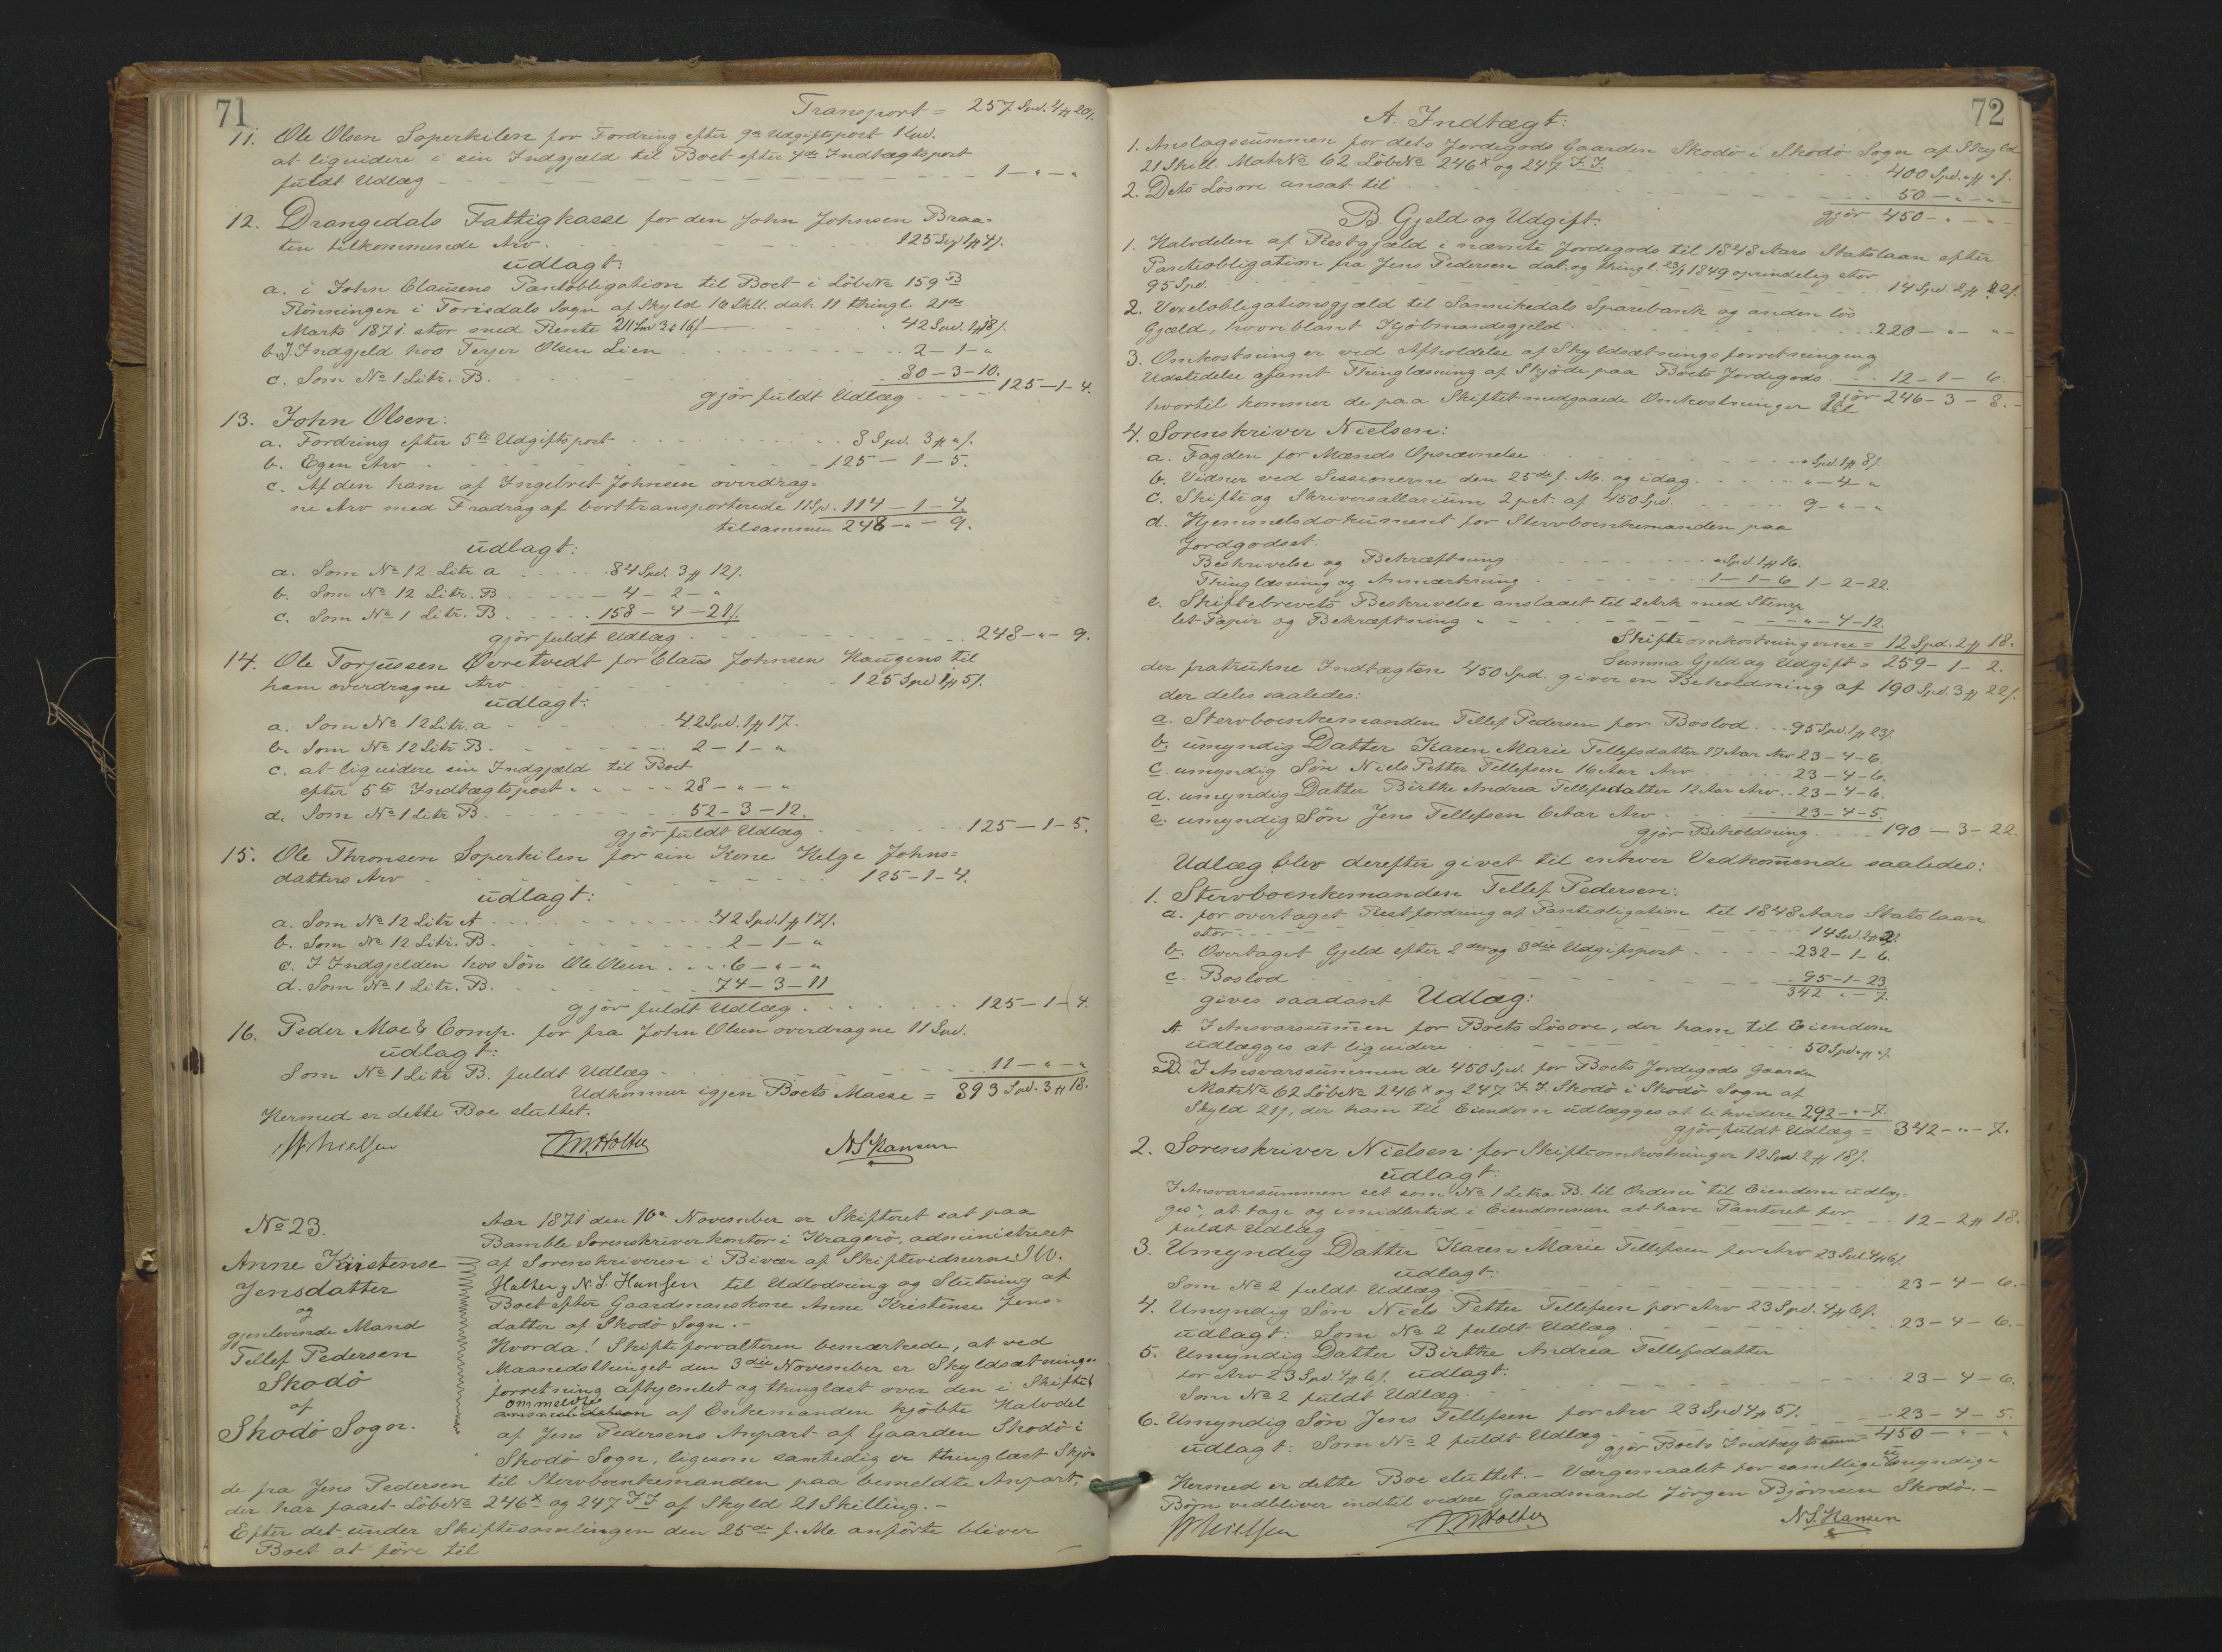 71
Transport = 257 Spd. 4 ₰ 20 ſ.
11. Ole Olsen Soperkilen for Fordring efter 9de Udgiftspost 1 Spd.
at liquidere i sin Indgjæld til Boet efter 4de Indtægtspost
fuldt Udlæg - - - 1 - " - "
12. Drangedals Fattigkasse for den John Johnsen Braa-
ten tilkommende Arv . 125 Spd 1 ₰ 4 ſ.
udlagt:
a. i John Clausens Pantobligation til Boet i Löbe № 159 B
Rönningen i Torisdals Sogn af Skyld 16 Skll. dat. 11 thingl. 21de
Marts 1871 stor med Rente 211 Spd 3 ₰ 16 ſ - 42 Spd. 1 ₰ 18 ſ.
b. I Indgjeld hos Terjer Olsen Lien . . 2 - 1 - "
c. Som № 1 Litr. B. . . 80 - 3 - 10.
gjör fuldt Udlæg . . . 125 - 1 - 4.
13. John Olsen:
a. Fordring efter 5te Udgiftspost - - 8 Spd. 3 ₰ " ſ.
b. Egen Arv - - 125 - 1 - 5.
c. Af den ham af Ingebret Johnsen overdrag-
ne Arv med Fradrag af borttransporterede 11 Sp. 114 - 1 - 4.
tilsammen 248 - " - 9.
udlagt:
a. Som № 12 Litr. a . . . 84 Spd. 3 ₰ 12 ſ.
b. Som № 12 Litr. B . . . 4 - 2 - "
c. Som № 1 Litr. B . . . 158 - 4 - 21 ſ.
gjör fuldt Udlæg . . . 248 - " - 9.
14. Ole Torjussen Övretvedt for Claus Johnsen Haugens til
ham overdragne Arv . . 125 Spd 1 ₰ 5 ſ.
udlagt:
a. Som № 12 Litr. a - - 42 Spd. 1 ₰ 17.
b. Som № 12 Litr B. - - 2 - 1 - "
c. at liquidere sin Indgjæld til Boet
efter 5te Indtægtspost - - - 28 - " - "
d. Som № 1 Litr B. - - 52 - 3 - 12.
gjör fuldt Udlæg - - 125 - 1 - 5.
15. Ole Thronsen Soperkilen for sin Kone Helge Johns=
datters Arv - - 125 - 1 - 4.
udlagt:
a. Som № 12 Litr A . . . 42 Spd. 1 ₰ 17 ſ.
b. Som № 12 Litr. B. - - 2 - 1 - "
c. I Indgjelden hos Sön Ole Olsen . . . 6 - " - "
d. Som № 1 Litr. B. - . 74 - 3 - 11
gjör fuldt Udlæg . . . 125 - 1 - 4.
16. Peder Moe & Comp. for fra John Olsen overdragne 11 Spd.
udlagt:
Som № 1 Litr B. fuldt Udlæg - - 11 - " - "
Udkommer igjen Boets Masse = 893 Spd. 3 ₰ 18.
Hermed er dette Boe sluttet.
Nielsen J.W. Holter N.S. Hansen
№ 23.
Anne Kirstense
Jensdatter
og
gjenlevende Mand
Tellef Pedersen
Skadö
af
Skadö Sogn.
Aar 1871 den 10de November er Skifteret sat paa
Bamble Sorenskriverkontor i Kragerö, administreret
af Sorenskriveren i Bivær af Skiftevidnerne J.W.
Holter, N.S. Hansen til Udlodning og Slutning af
Boet efter Gaardmanskone Anne Kristense Jens-
datter af Skadö Sogn. -
Hvorda! Skifteforvalteren bemærkede, at ved
Maanedsthinget den 3die November er Skyldsætnings-
forretning afhjemlet og thinglæst over den i Skiftet
ommeldte
af Enkemanden kjöbte Halvdel
af Jens Pedersens Anpart af Gaarden Skadö i
Skadö Sogn, ligesom samtidig er thinglæst Skjö-
de fra Jens Pedersen til Stervboenkemanden paa bemeldte Anpart,
der har faaet Löbe № 246 x og 247 I.I af Skyld 21 Skilling. -
Efter det under Skiftesamlingen den 25de f. Me anförte bliver
Boet at före til
72
A. Indtægt:
1. Anslagssummen for dets Jordegods Gaarden Skadö i Skadö Sogn af Skyld
21 Skill. Matr № 62 Löb № 246 x og 247 I.I. . . 400 Spd. " ₰ " ſ.
2. Dets Lösöre ansat til . . . 50 - " - "
gjör 450 - " - "
B. Gjeld og Udgift:
1. Halvdelen af Restgjæld i nævnte Jordegods til 1848 Aars Statslaan efter
Panteobligation fra Jens Pedersen dat. og thingl. 23/1 1849 oprindelig stor
95 Spd. . . 14 Spd. 2 ₰ 2 ſ.
2. Vexelobligationsgjæld til Sannikedals Sparebank og anden lös
Gjæld, hvoriblant Kjöbmandsgjeld . . 220 - " - "
3. Omkostninger ved Afholdelse af Skyldsætningsforretning og
Udstedelse afsamt Thinglæsning af Skjöde paa Boets Jordegods . . 12 - 1 - 6.
gjör 246 - 3 - 8. -
hvortil kommer de paa Skiftet medgaaede Omkostninger til
4. Sorenskriver Nielsen:
a. Fogden for Mænds Opnævnelse . . " Spd. 1 ₰ 8 ſ.
b. Vidner ved Sessionerne den 25de f. M. og idag . . " - 4 - "
c. Skifte og Skriversallarium 2 pct. af 450 Spd. . . 9 - " - "
d. Hjemmelsdokument for Stervboenkemanden paa
Jordgodset:
Beskrivelse og Bekræftning . . " Spd. 1 ₰ 16.
Thinglæsning og Anmærkning . . 1 - 1 - 6 1 - 2 - 22.
e. Skiftebrevets Beskrivelse anslaaet til 2 Ark med Stemp-
let Papir og Bekræftning - - " - 4 - 12.
Skifteomkostningerne = 12 Spd. 2 ₰ 18.
Summa Gjeld og Udgift = 259 - 1 - 2.
der fratrukne Indtægten 450 Spd. giver en Beholdning af 190 Spd. 3 ₰ 22 ſ.
der deles saaledes:
a. Stervboenkemanden Tellef Pedersen for Boslod . . 95 Spd. 1 ₰ 23 ſ.
b. umyndig Datter Karen Marie Tellefsdatter 17 Aar Arv 23 - 4 - 6.
c. umyndig Sön Niels Petter Tellefsen 16 Aar Arv . . 23 - 4 - 6.
d. umyndig Datter Birthe Andrea Tellefsdatter 12 Aar Arv . . 23 - 4 - 6.
e. umyndig Sön Jens Tellefsen 6 Aar Arv . . 23 - 4 - 5.
gjör Beholdning . . . 190 - 3 - 22.
Udlæg blev derefter givet til enhver Vedkommende saaledes:
1. Stervboenkemanden Tellef Pedersen:
a. for overtaget Restfordring af Panteobligation til 1848 Aars Statslaan
stor - - 14 Spd. 2 ₰ 2 ſ.
b. Overtaget Gjeld efter 2den og 3die Udgiftspost - - 232 - 1 - 6.
c. Boslod . . 95 - 1 - 23
342 " - 7.
gives saadant Udlæg:
A. I Ansvarssummen for Boets Lösöre, der ham til Eiendom
udlægges at liquidere . . 50 Spd " ₰ " ſ.
B. I Ansvarssummen de 450 Spd. for Boets Jordegods Gaarden
Matr № 62 Löb № 246 x og 247 I.I. Skadö i Skadö Sogn af
Skyld 21 ſ, der ham til Eiendom udlægges at likvidere 292 - " - 7.
gjör fuldt Udlæg = 342 - " - 7.
2. Sorenskriver Nielsen for Skifteomkostninger 12 Spd. 2 ₰ 18 ſ.
udlagt:
I Ansvarssummen set som № 1 Litra B. til Ordene "til Eiendom udlæg-
ges", at tage og imidlertid i Eiendommen at have Panteret for
fuldt Udlæg - - 12 - 2 ₰ 18.
3. Umyndig Datter Karen Marie Tellefsen for Arv 23 Spd 4 ₰ 6 ſ.
udlagt:
Som № 2 fuldt Udlæg . . 23 - 4 - 6. -
4. Umyndig Sön Niels Petter Tellefsen for Arv 23 Spd. 4 ₰ 6 ſ.
udlagt: Som № 2 fuldt Udlæg . . 23 - 4 - 6. -
5. Umyndig Datter Birthe Andrea Tellefsdatter
for Arv 23 Spd. 4 ₰ 6 ſ. udlagt:
Som № 2 fuldt Udlæg . . 23 - 4 - 6.
6. Umyndig Sön Jens Tellefsen for Arv 23 Spd 4 ₰ 5 ſ.
udlagt: Som № 2 fuldt Udlæg . . 23 - 4 - 5.
gjör Boets Indtægtssum = 450 - " - "
Hermed er dette Boe sluttet. - Værgemaalet for samtlige umyndige
Börn vedbliver indtil videre Gaardmand Jörgen Björnsen Skadö. -
Nielsen J.W. Holter N.S. Hansen